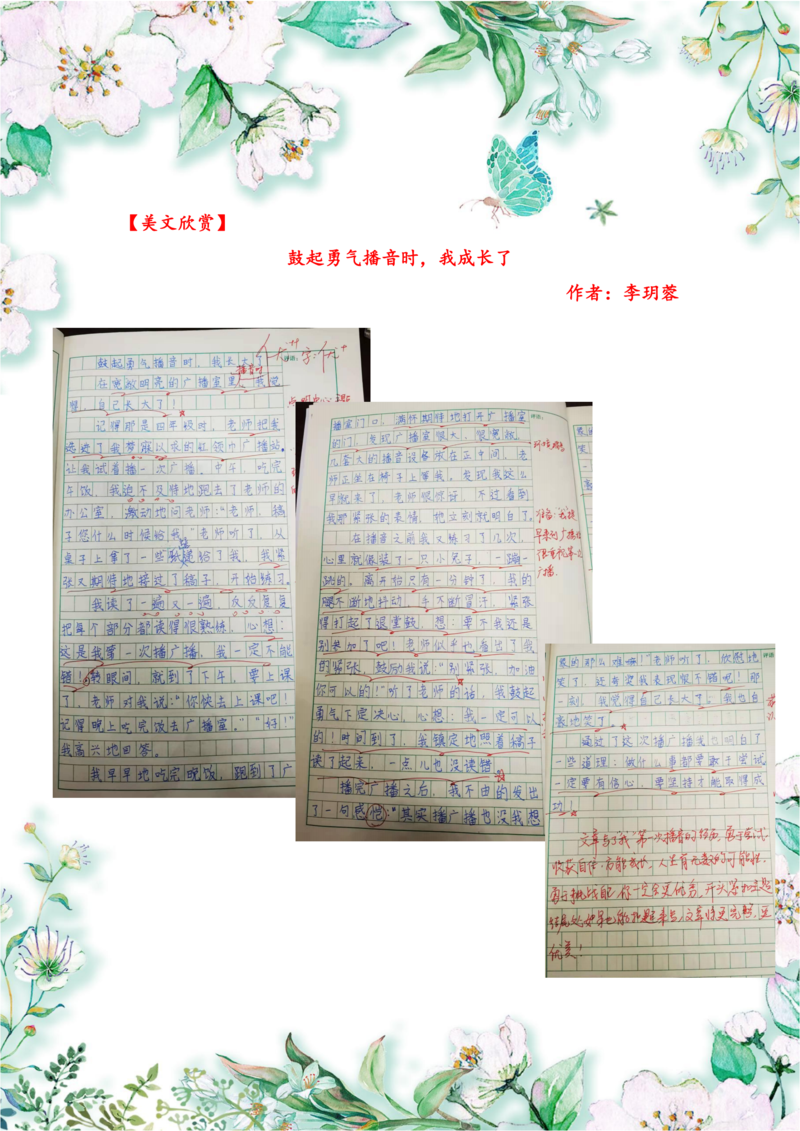 【美文欣赏】
鼓起勇气播音时，我成长了
作者：李玥蓉
鼓起勇气播音时，我长大了
播音时
在宽敞明亮的广播室里，我觉
得自己长大了！
记得那是四年级时，老师把我
选进了我梦寐以求的红领巾广播站。
让我试着播一次广播。中午，吃完
午饭，我迫不及待地跑去了老师的
办公室，激动地问老师：“老师，稿
子您什么时候给我”老师听了，从
桌子上拿了一些纸递给了我，我紧
张又期待地接过了稿子，开始练习。
我读了一遍又一遍，反反复复
把每个部分都读得很熟练，心想：
这是我第一次播广播，我一定不能
错！转眼间，就到了下午，要上课
了，老师对我说：“你快去上课吧！
记得晚上吃完饭去广播室。”“好！”
我高兴地回答。
我早早地吃完晚饭，跑到了广
播室门口，满怀期待地打开广播室
的门，发现广播室很大，很宽敞，
几套大的播音设备放在正中间，老
师正坐在椅子上等我。发现我这么
早就来了，老师很惊讶，不过看到
我那紧张的表情，她立刻就明白了。
在播音之前我又练习了几次，
心里就像装了一只小兔子，一蹦一
跳的。离开始只有一分钟了，我的
腿不断地抖动，手不断冒汗，紧张
得打起了退堂鼓，想：要不我还是
别参加了吧！老师似乎也看出了我
的紧张，鼓励我说：“别紧张，加油
你可以的！”听了老师的话，我鼓起
勇气下定决心，心想：我一定可以
的！时间到了，我镇定地照着稿子
读了起来，一点儿也没读错。
播完广播之后，我不由的发出
了一句感慨：“其实播广播也没我想
象的那么难嘛！”老师听了，欣慰地
笑了，还夸奖我表现很不错呢！那
一刻，我觉得自己长大了，我也自
豪地笑了。
通过了这次播广播我也明白了
一些道理：做什么事都要敢于尝试
一定要有信心，要坚持才能取得成
功！
文章写了“我”第一次播音的经历，勇于尝试，
收获自信，方能成长，人生有无数的可能性，
勇于挑战吧，你一定会更优秀，开头紧扣主题
优秀！